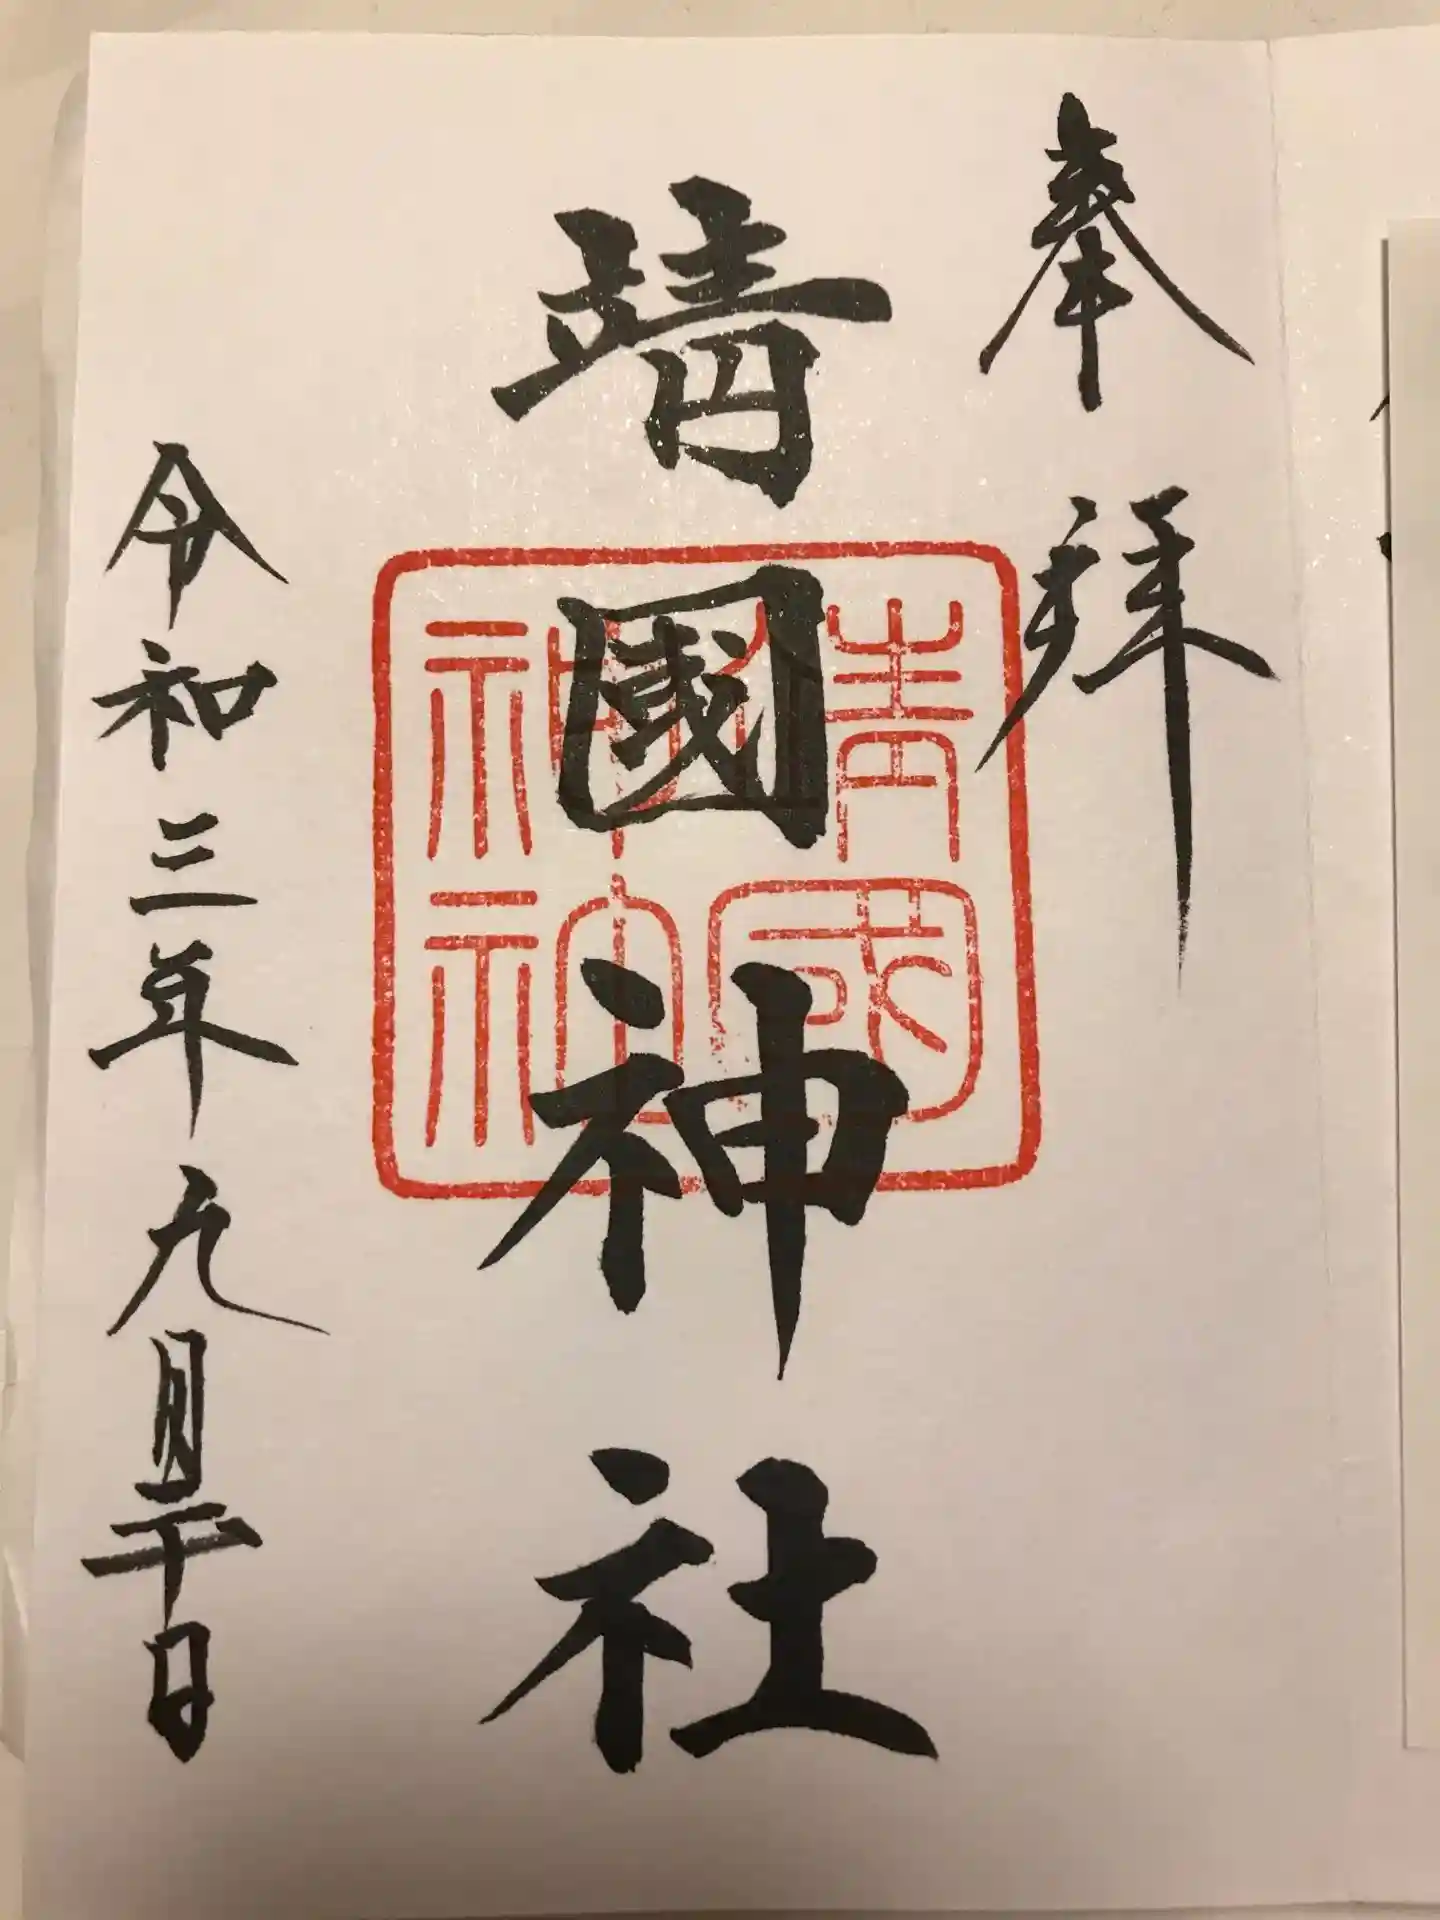 奉拝
靖國神社
靖國
神社
令和三年九月二十日